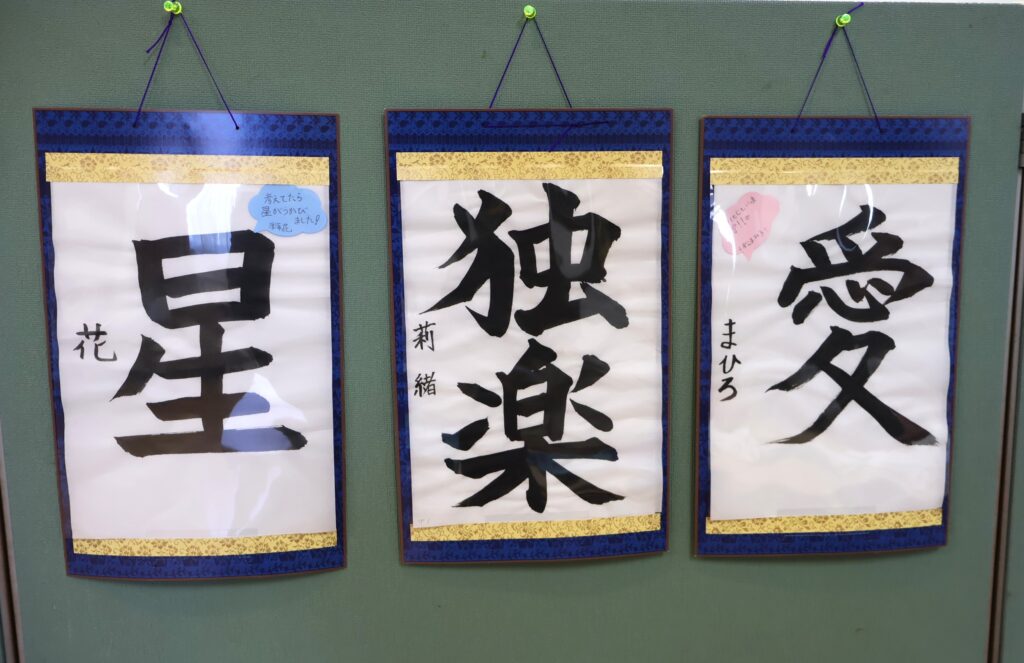 星
花
考えてたら
星がうかび
ました!
独楽
莉緒
愛
まひろ